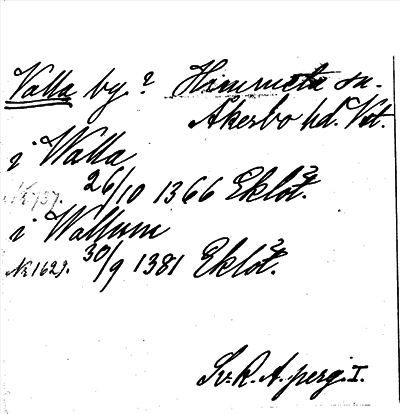 Valla by? Himmeta sn.
Åkerbo hd. Vst.
i Walla
Nr 737. 26/10 1366 Eklöt?.
i Wallum
Nr 1629. 30/9 1381 Eklöt?.
Sv. R. A. perg. I.